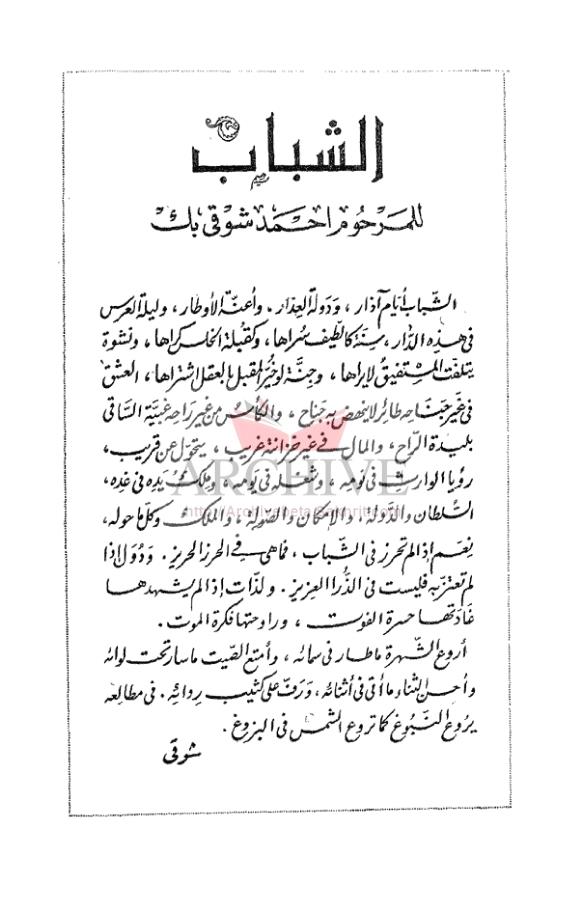 الشباب
للمرحوم احمد شوقى بك
الشّباب أيّام آذار، ودَولة العِذار. وأعنّة الأوطار، وليلة العرس
فى هذه الدّار، سِنَة كالطيف سُراها، وكقبلة الخلس كراها، ونشوة
يتلفّت المستفيق لا يراها، وجنّة لو خيّر المقبل بالعقل اشتراها، العشق
فى غير جناحه طائر لا ينهض به جناح، والكأس من غير راحه غبيّة الساقى
بليدة الرّاح، والمال فى غير خزانته غريب، يتحوّل عن قريب،
رؤيا الوارث فى نومه، وشغله فى يومه، وملك يده فى غده،
السُّلطان والدّولة، والإمكان والصّولة، والملك وكلّ ما حوله،
نِعَم إذا لم تحرز فى الشّباب، فما هى فى الحرز الحريز. ودُوَل إذا
لم تعتز به فليست فى الذُّرا العزيز. ولذّات إذا لم يشهدها
غادتها حسرة الفوت، وراوحتها فكرة الموت.
أروع الشّهرة ما طار فى سمائه، وأمتع الصّيت ما سار تحت لوائه
وأحسن الثناء ما أتى فى أثنائه، ورَفّ على كثيب رِدائه. فى مطالعه
يرُوع النّبوغ كما تروع الشمس فى البزوغ.
شوقى
ARCHIVE